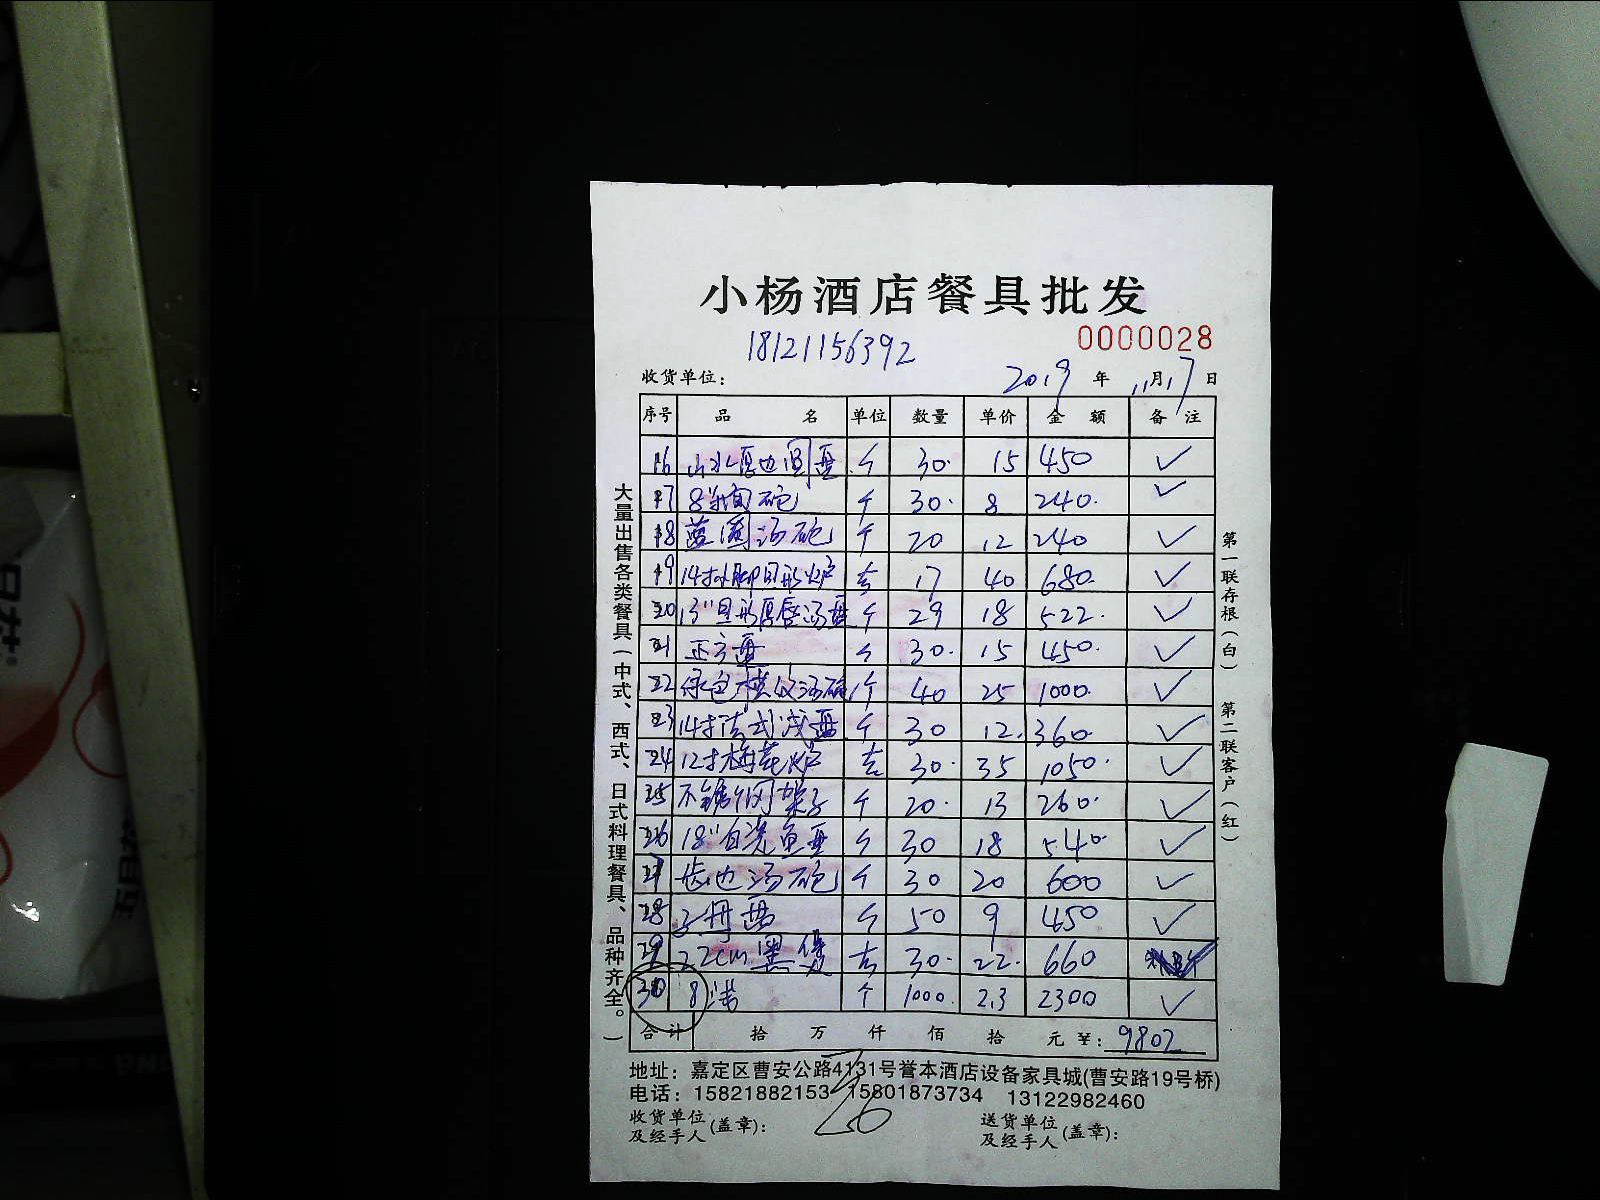 小杨酒店餐具批发
18121156392
0000028
收货单位: 2019 年 11月17日
序号 品 名 单位 数量 单价 金 额 备 注
16 山水厚边圆盘 个 30. 15 450 ✓
17 8 个 30. 8 240. ✓
18 蓝 汤碗 个 20 12 240 ✓
19 14寸 炉 套 17 40 680. ✓
20 13" 形厚 汤盘 个 29 18 522. ✓
21 正方盘 个 30. 15 450. ✓
22 绿色 汤碗 个 40 25 1000. ✓
23 14寸法式浅盘 个 30 12. 360. ✓
24 12寸梅花炉 套 30. 35 1050. ✓
25 不锈钢架子 个 20. 13 260. ✓
26 18" 鱼盘 个 30 18 540. ✓
27 边汤碗 个 30 20 600 ✓
28 个 50 9 450 ✓
29 22cm黑煲 套 30. 22. 660
30 8 个 1000. 2.3 2300 ✓
合计 拾 万 仟 佰 拾 元 ¥: 9802
地址: 嘉定区曹安公路4131号誉本酒店设备家具城(曹安路19号桥)
电话: 15821882153 15801873734 13122982460
收货单位及经手人(盖章): 送货单位及经手人(盖章):
大量出售各类餐具(中式、西式、日式料理餐具、品种齐全。)
第一联存根(白) 第二联客户(红)